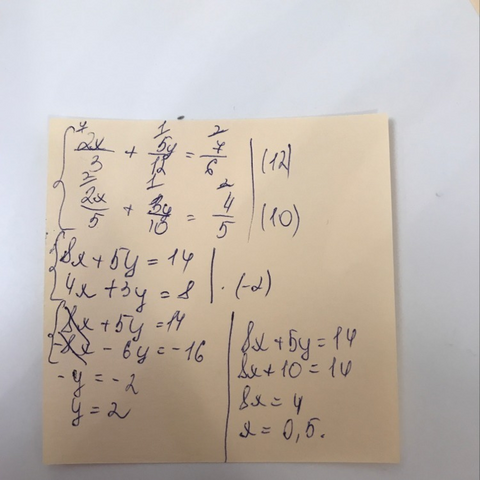 2x/3 + 5y/12 = 7/6 | (12)
2x/5 + 3y/10 = 4/5 | (10)
8x + 5y = 14
4x + 3y = 8 | · (-2)
8x + 5y = 14
-8x - 6y = -16
-y = -2
y = 2
8x + 5y = 14
8x + 10 = 14
8x = 4
x = 0,5.